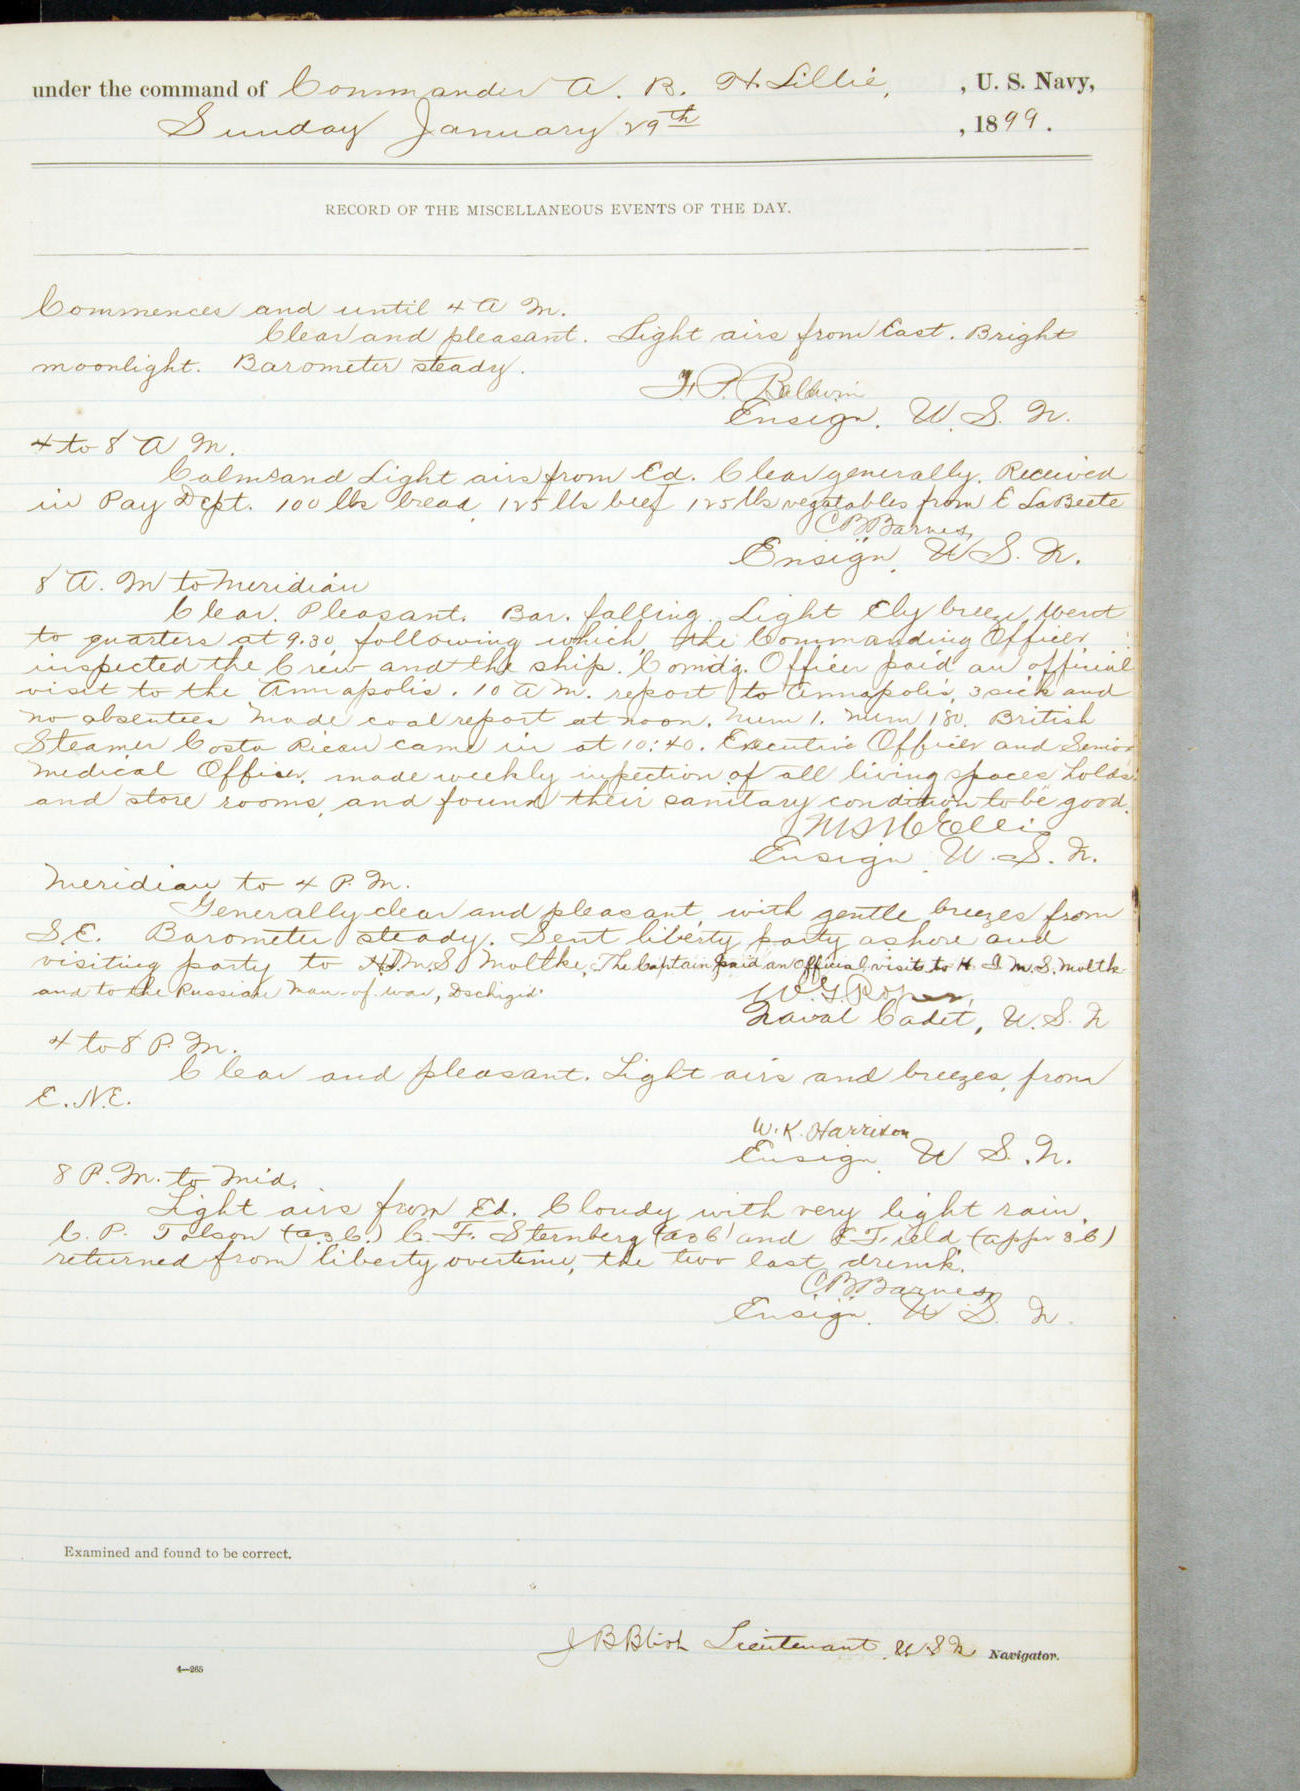 under the command of Commander A. B. H. Lillie, , U. S. Navy,
Sunday January 29th , 1899.
RECORD OF THE MISCELLANEOUS EVENTS OF THE DAY.
Commences and until 4 A M.
Clear and pleasant. Light airs from East. Bright
moonlight. Barometer steady.
F. P. Baldwin
Ensign, U. S. N.
4 to 8 A M.
Calms and Light airs from Ed. Clear generally. Received
in Pay Dept. 100 lbs bread, 125 lbs beef 125 lbs vegatables from E LaBeete
C B Barnes,
Ensign, U S. N.
8 A. M to Meridian
Clear. Pleasant. Bar. falling. Light Ely breeze, Went
to quarters at 9.30, following which, the Commanding Officer
inspected the Crew and the ship. Comdg. Officer paid an official
visit to the Annapolis. 10 A M. report to Annapolis, 3 sick and
no absentees Made coal report at noon. Num 1. Num 180. British
Steamer Costa Rican came in at 10:40. Executive Officer and Senior
Medical Officer, made weekly inspection of all living spaces holds
and store rooms, and found their sanitary condition to be good.
Ensign U. S. N.
Meridian to 4 P. M.
Generally clear and pleasant, with gentle breezes from
S.E. Barometer steady. Sent liberty party ashore and
visiting party to H.I.M.S Moltke, The Captain paid an official visit to H. I. M. S. Moltk
and to the Russian Man-of-war, Dschigid.
W. G. Roper,
Naval Cadet, U. S. N
4 to 8 P. M.
Clear and pleasant. Light airs and breezes, from
E. N.E.
W. K. Harrison
Ensign, U S. N.
8 P. M. to Mid.
Light airs from Ed. Cloudy with very light rain.
C. P. Tolson (a3c.) C. F. Sternberg and E Field (appr 3c)
returned from liberty overtime, the two last drunk.
C. B. Barnes,
Ensign. U. S. N.
Examined and found to be correct.
J B Blish Lieutenant, U S N Navigator.
4—265